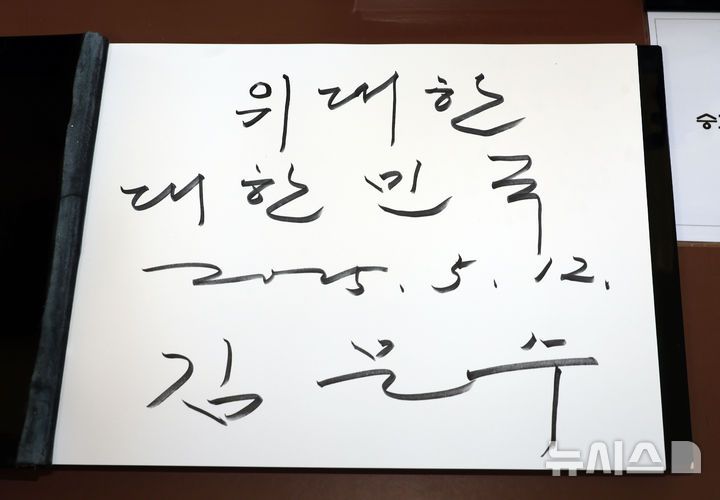 위대한
대한민국
2025. 5. 12.
김문수
뉴시스